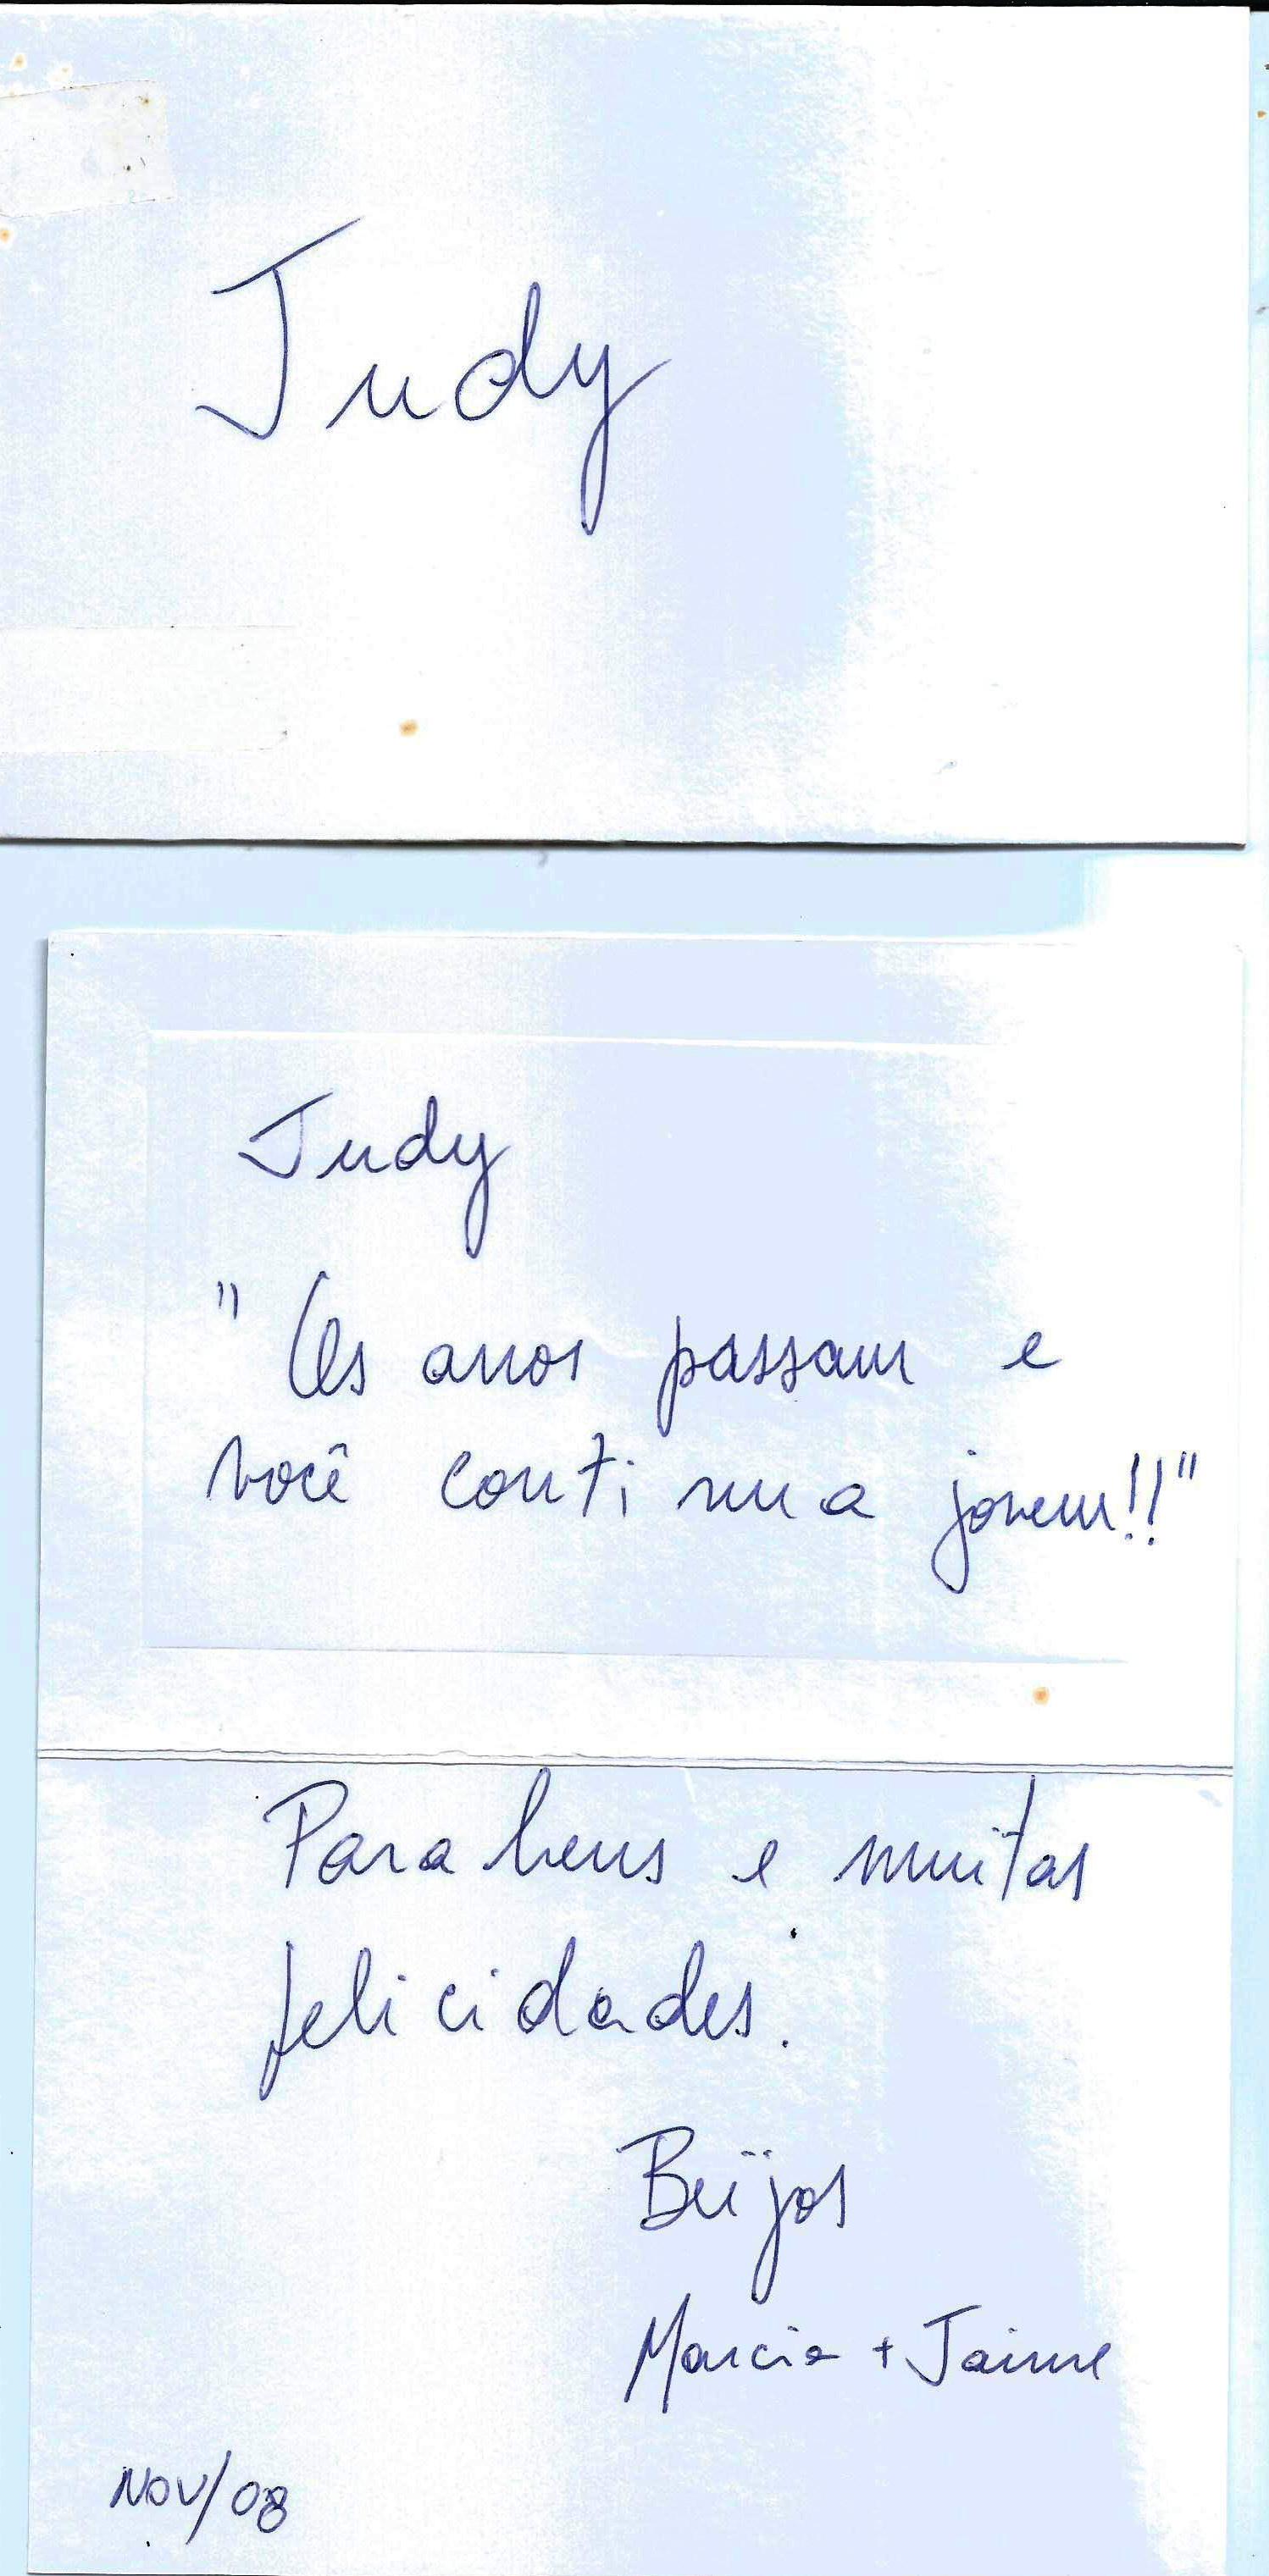 Judy
Judy
"Os anos passam e
você continua jovem!!"
Parabens e muitas
felicidades.
Beijos
Marcia + Jaime
NOV/08